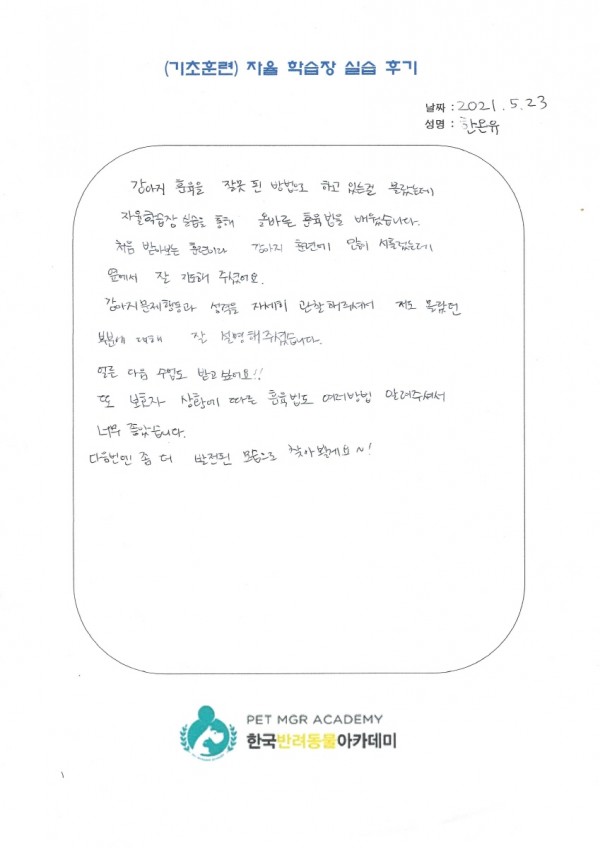 (기초훈련) 자율 학습장 실습 후기
날짜 : 2021.5.23
성명 : 한온유
강아지 훈육을 잘못 된 방법으로 하고 있는걸 몰랐는데
자율학습장 실습을 통해 올바른 훈육법을 배웠습니다.
처음 받아보는 훈련이라 강아지 훈련에 많이 서툴렀는데
옆에서 잘 지도해 주셨어요.
강아지문제행동과 성격을 자세히 관찰해주셔서 저도 몰랐던
부분에 대해 잘 설명해주셨습니다.
얼른 다음 수업도 받고싶어요!!
또 보호자 상황에 따른 훈육법도 여러방법 알려주셔서
너무 좋았습니다.
다음번엔 좀 더 발전된 모습으로 찾아뵐게요~!
PET MGR ACADEMY
한국반려동물아카데미